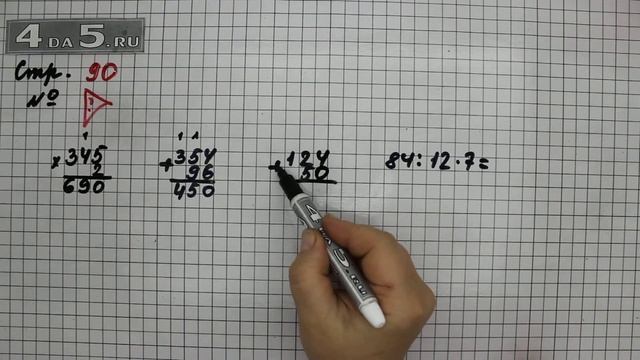 4 DA 5.RU
Стр. 90
№ ?
1
× 345
2
690
1 1
+ 354
96
450
+ 124
50
84 : 12 · 7 =